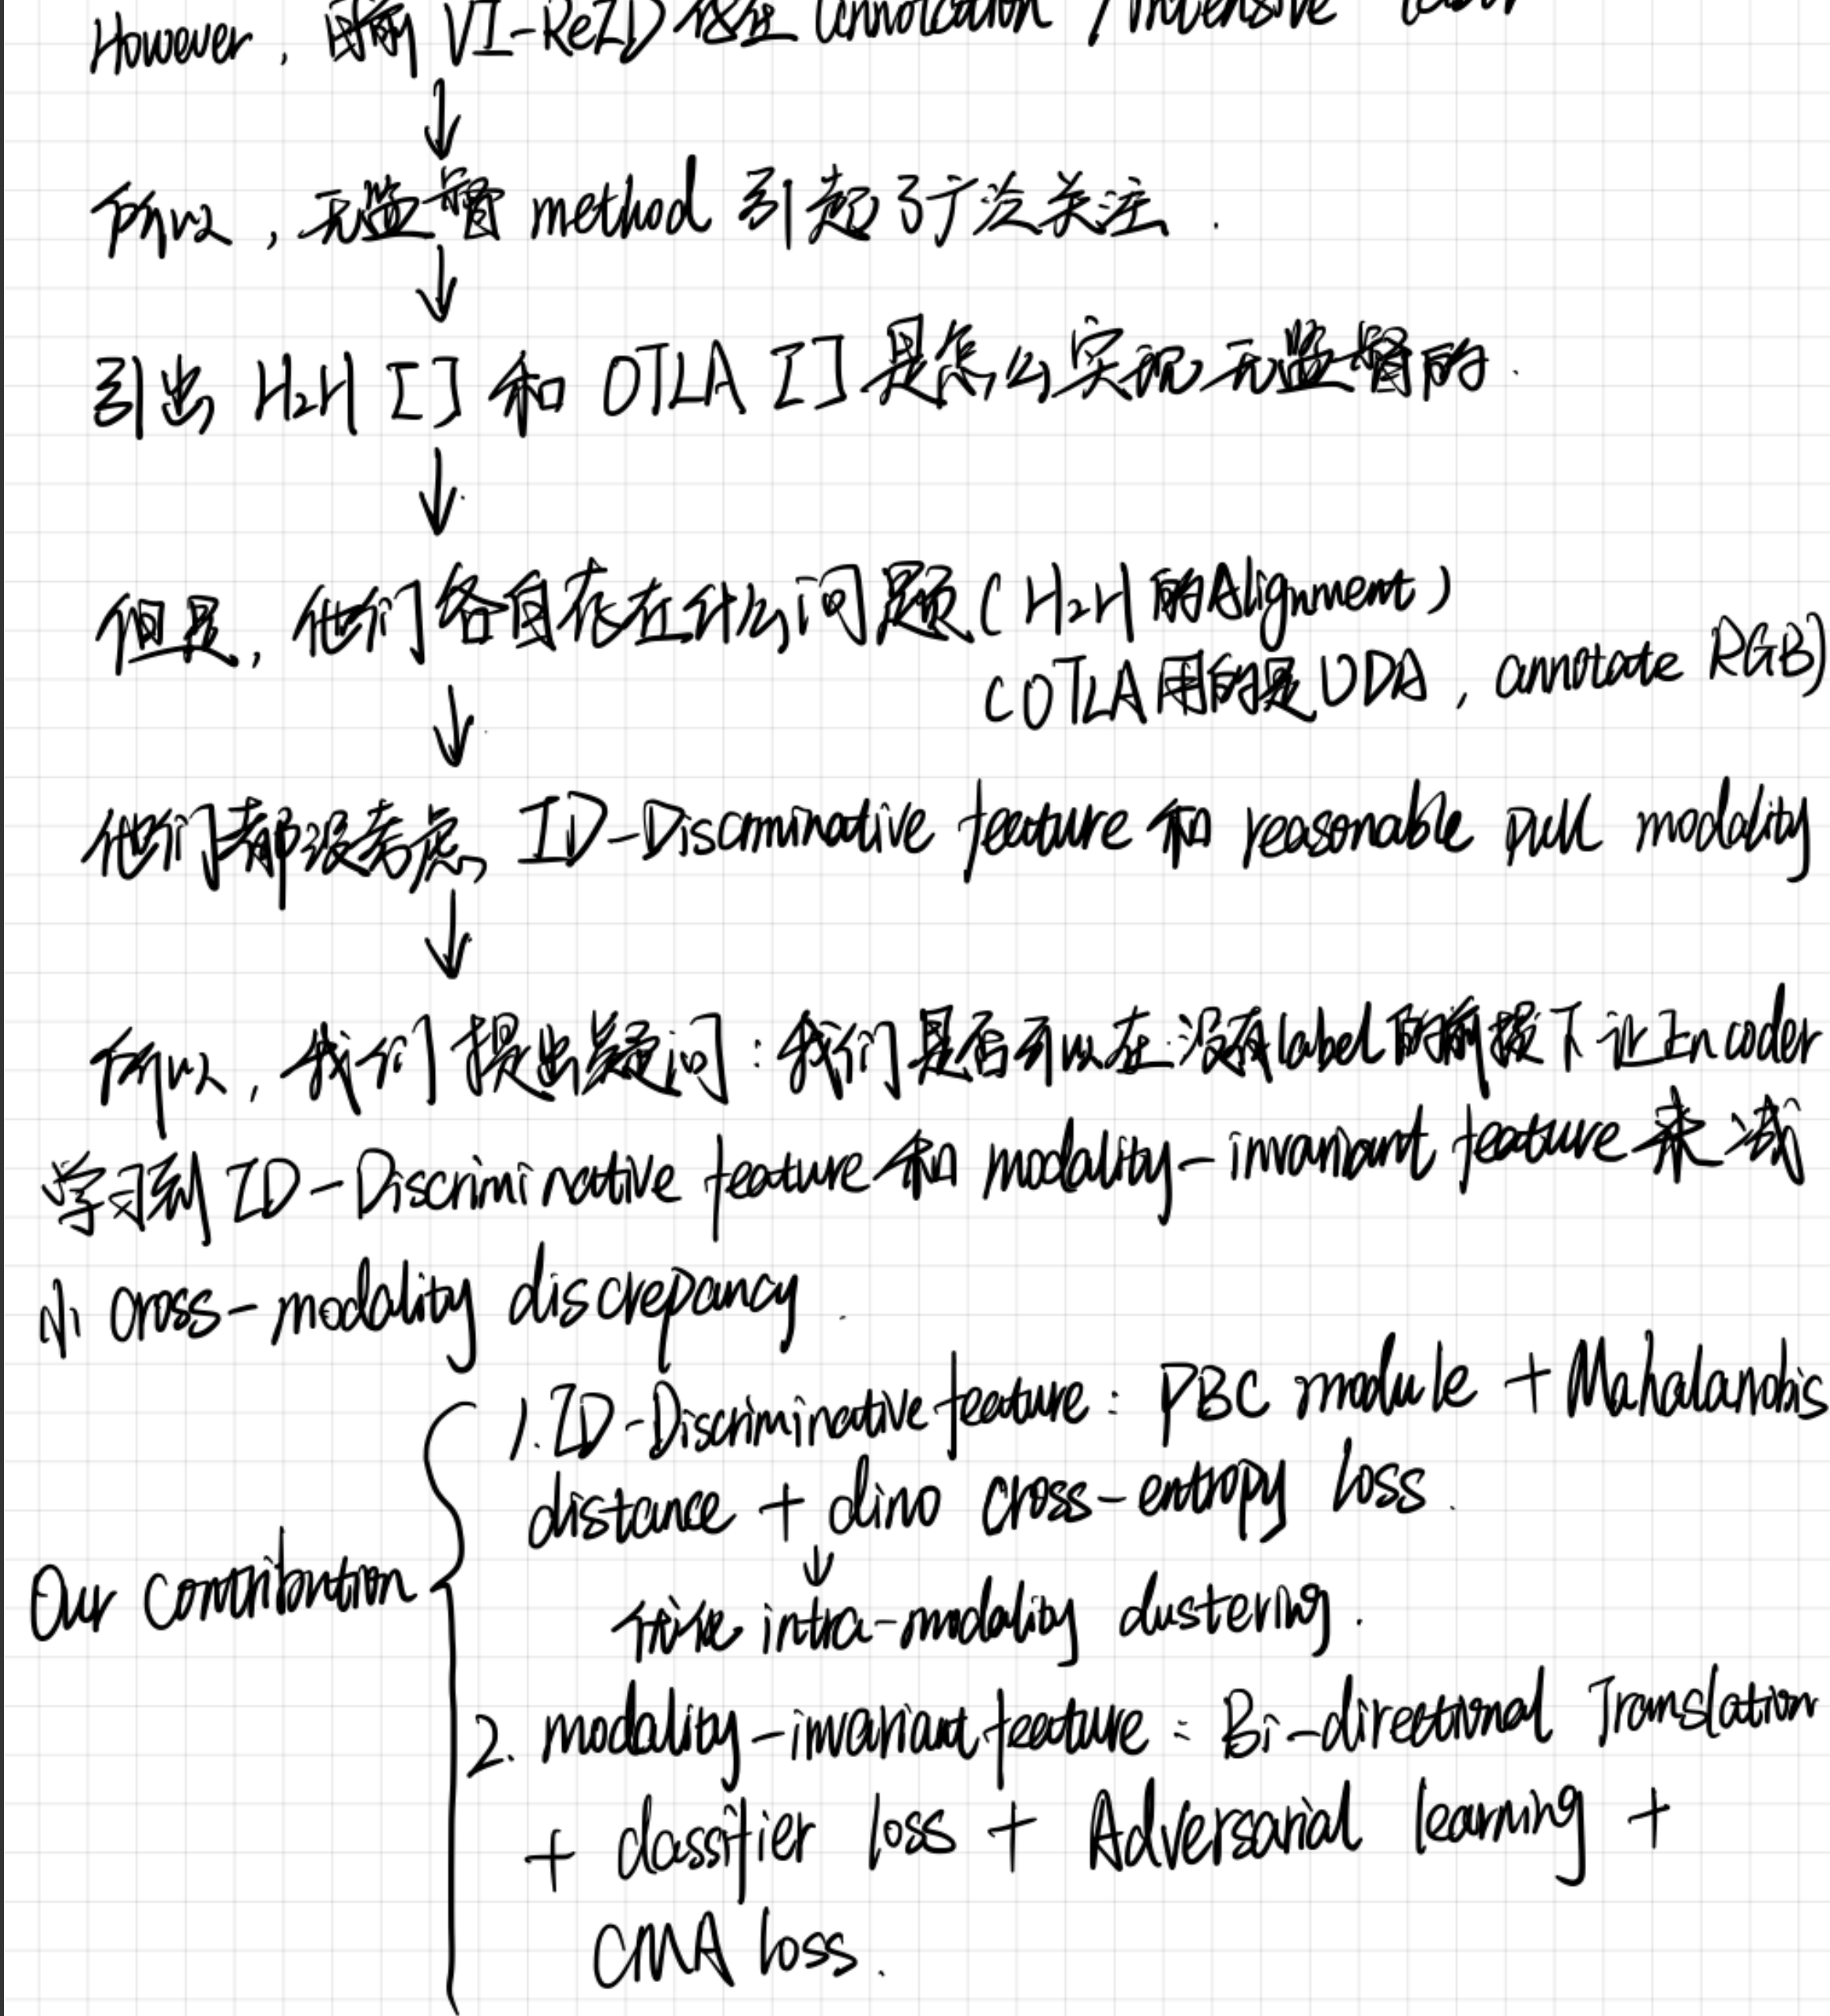 However, 目前 VI-ReID 依赖 annotation / intensive
↓
所以, 无监督 method 引起了广泛关注.
↓
引出 H2H [] 和 OTLA [] 是怎么实现无监督的.
↓
但是, 他们各自存在什么问题 (H2H 的 Alignment)
(OTLA 用的是 UDA, annotate RGB)
↓
他们都没考虑 ID-Discriminative feature 和 reasonable pull modality
↓
所以, 我们提出疑问: 我们是否可以在没有 label 的前提下让 Encoder
学习到 ID-Discriminative feature 和 modality-invariant feature 来减
小 cross-modality discrepancy.
1. ID-Discriminative feature: PBC module + Mahalanobis
distance + dino cross-entropy loss.
↓
Our contribution
intra-modality clustering.
2. modality-invariant feature: Bi-directional Translation
+ classifier loss + Adversarial learning +
CMA loss.